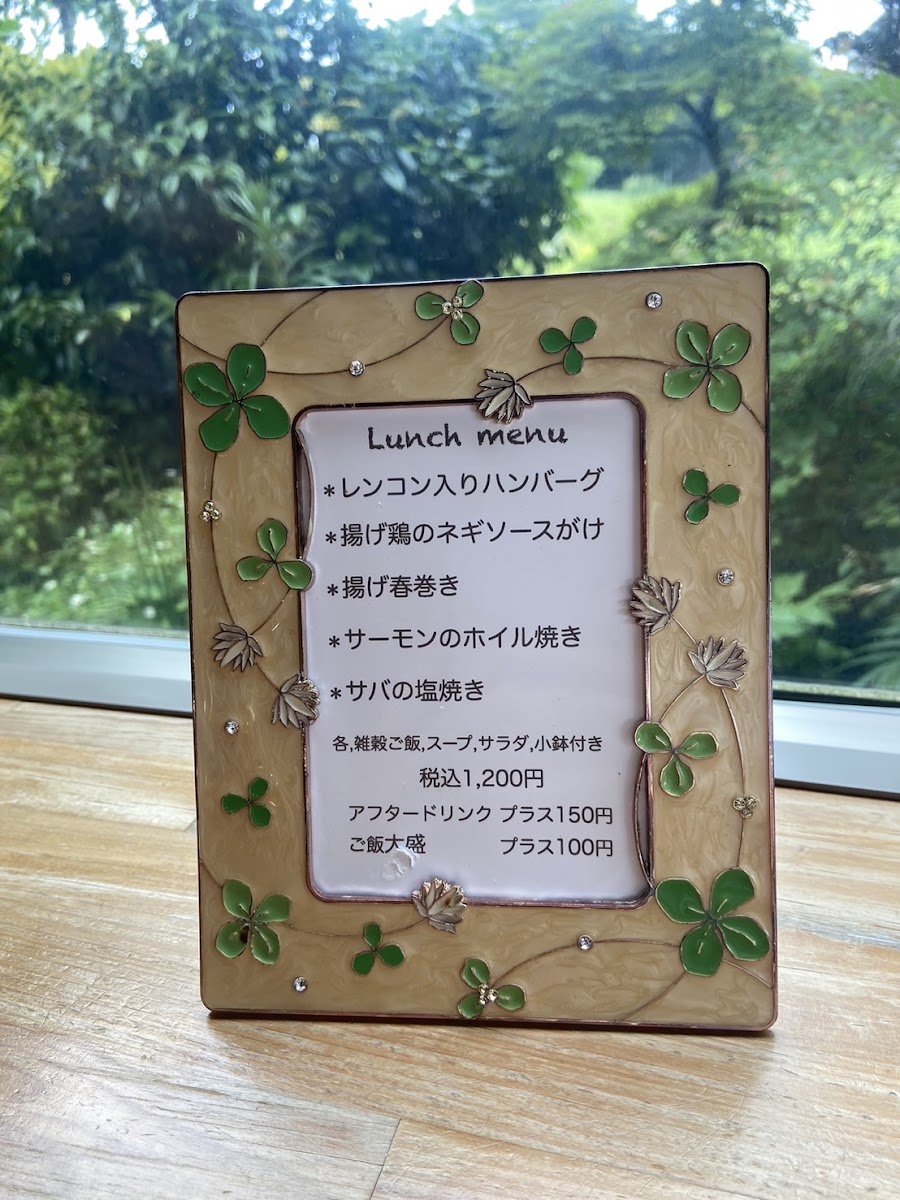 Lunch menu
*レンコン入りハンバーグ
*揚げ鶏のネギソースがけ
*揚げ春巻き
*サーモンのホイル焼き
*サバの塩焼き
各,雑穀ご飯,スープ,サラダ,小鉢付き
税込1,200円
アフタードリンク プラス150円
ご飯大盛 プラス100円